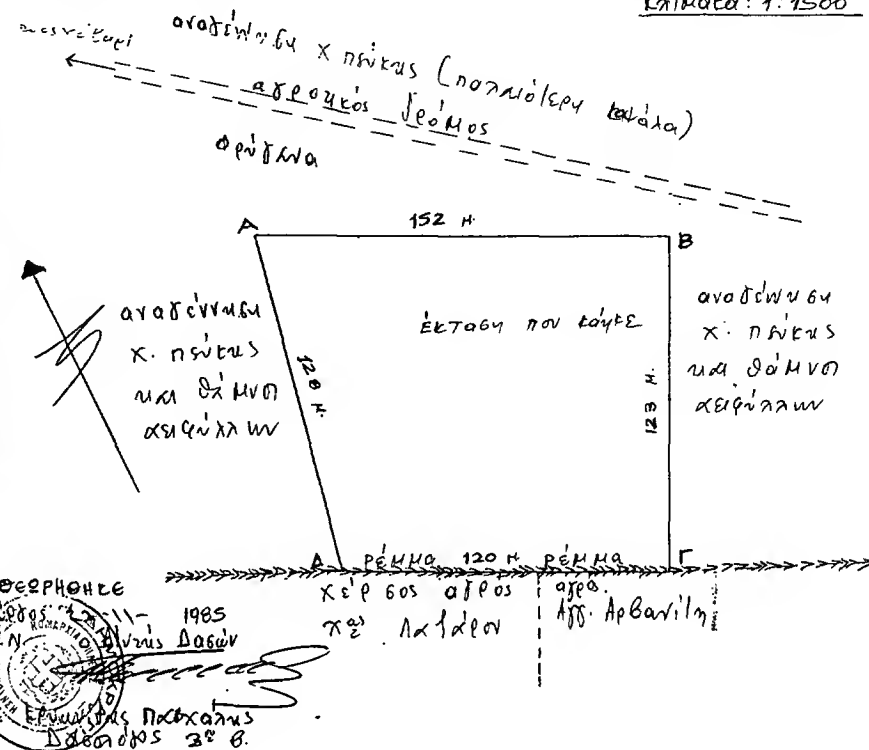 Κλίμακα: 1:1500
αναγέννηση χ πεύκης (παλαιότερη
αγροτικός δρόμος
φρύγανα
Α 152 μ. Β
αναγέννηση
χ. πεύκης
και θάμνοι
αειφύλλων
128 μ.
έκταση που κάηκε
123 μ.
αναγέννηση
χ. πεύκης
και θάμνοι
αειφύλλων
Δ ρέμμα 120 μ ρέμμα Γ
χέρσος αγρός
χας Λαζάρου
αγρο.
Αγγ. Αρβανίτη
ΘΕΩΡΗΘΗΚΕ
1985
Δασών
Πασχάλης